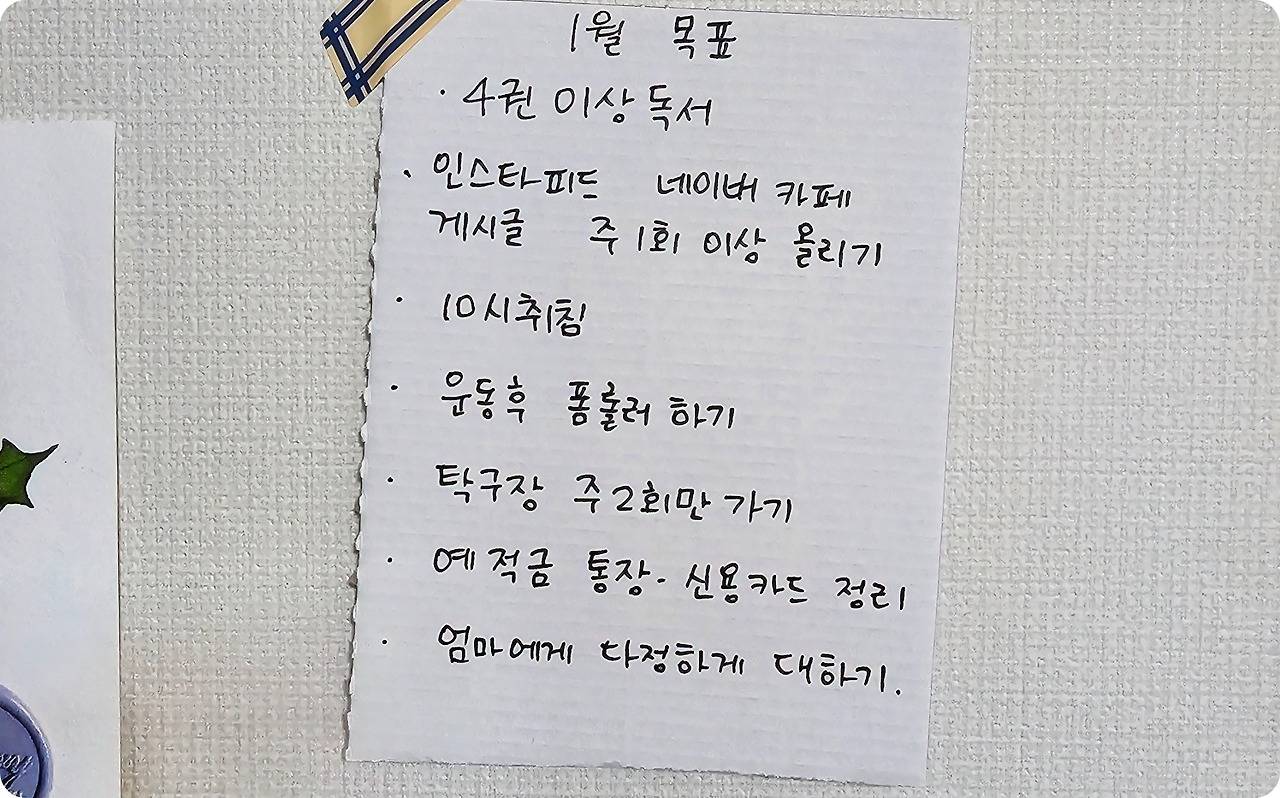 1월 목표
· 4권 이상 독서
· 인스타피드 네이버 카페
게시글 주 1회 이상 올리기
· 10시취침
· 운동후 폼롤러 하기
· 탁구장 주2회만 가기
· 예적금 통장·신용카드 정리
· 엄마에게 다정하게 대하기.